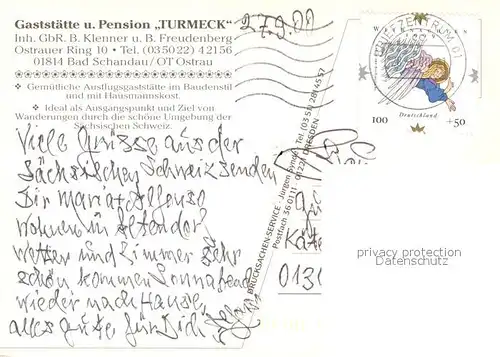 Gaststätte u. Pension „TURMECK"
Inh. GbR. B. Klenner u. B. Freudenberg
Ostrauer Ring 10 • Tel. (035022) 42156
01814 Bad Schandau/OT Ostrau
Gemütliche Ausflugsgaststätte im Baudenstil
und mit Hausmannskost.
Ideal als Ausgangspunkt und Ziel von
Wanderungen durch die schöne Umgebung der
Sächsischen Schweiz.
27.9.00
100 Deutschland +50
Viele Grüsse aus der
Sächsischen Schweiz senden
Dir Maria + Alfonso
wohnen in Altendorf
Wetter und Zimmer sehr
schön kommen Sonnabend
wieder nach Hause,
alles gute für Dich
DRUCKSACHEN-SERVICE Jürgen Tel (03 51) 2 81 45 57
Postfach 36 01 11 · 01221 DRESDEN
privacy protection
Datenschutz